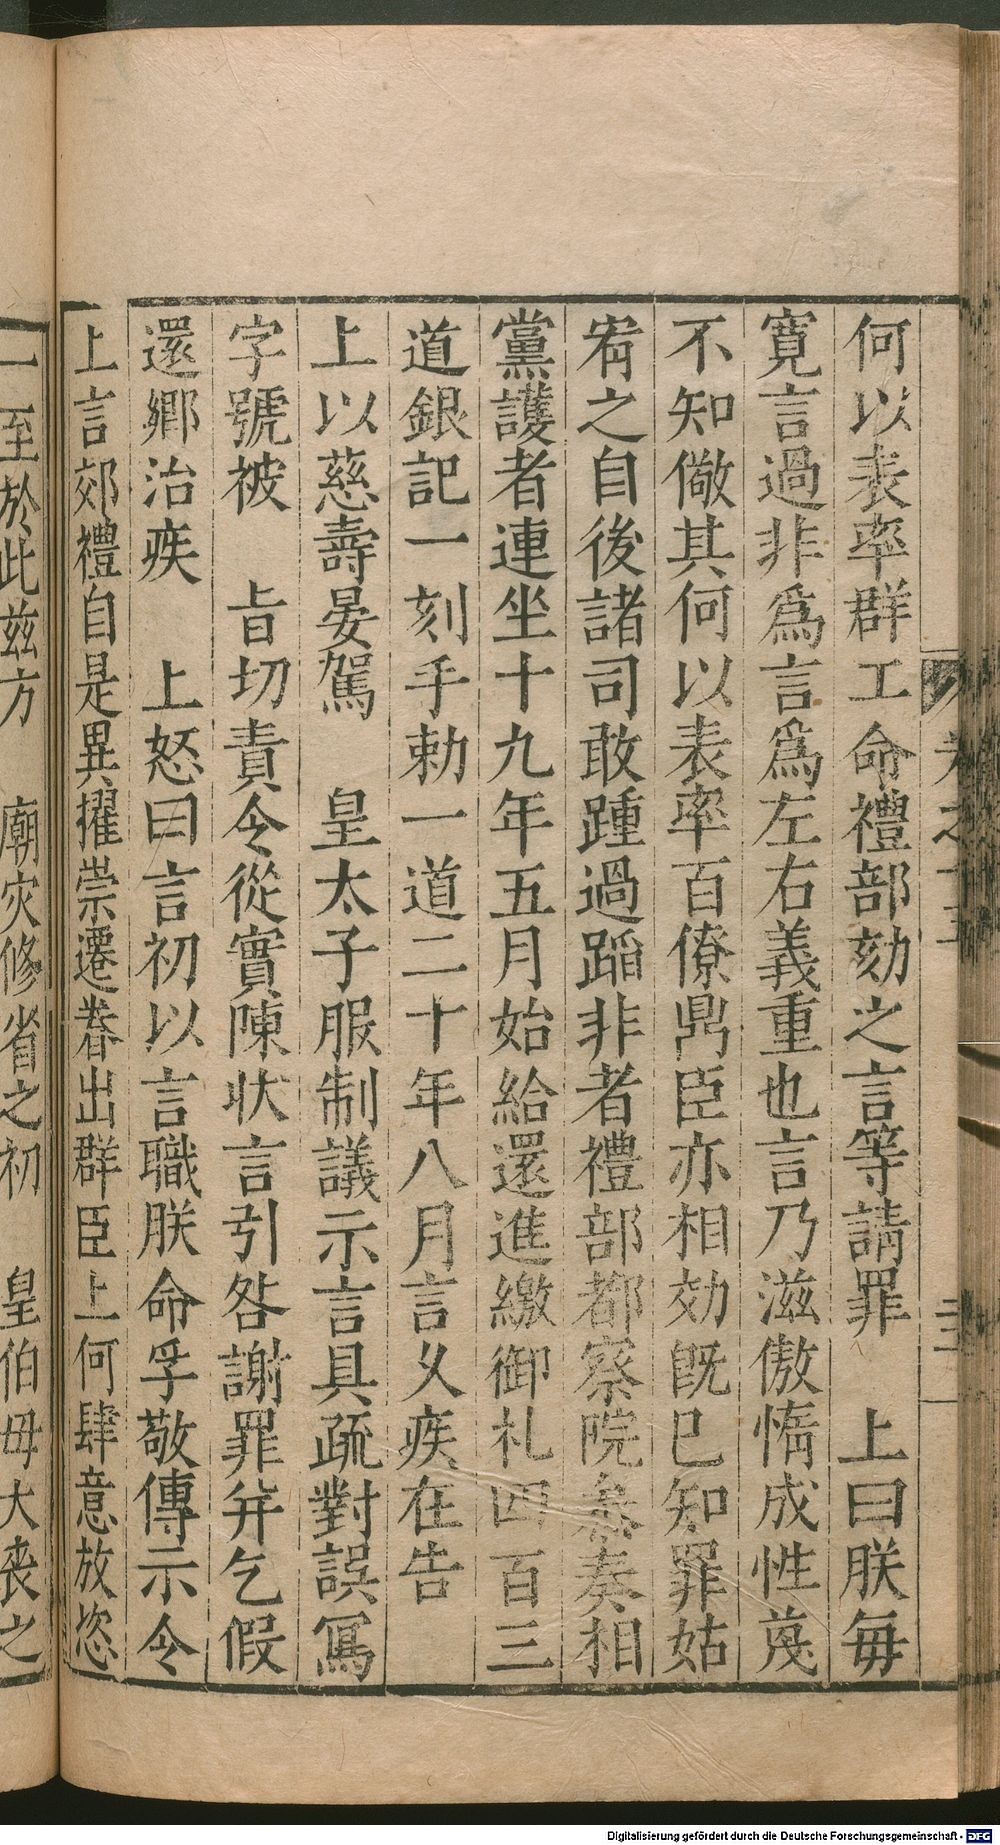 何以表率群工命禮部劾之言等請罪　上曰朕每
寛言過非爲言爲左右義重也言乃滋傲惰成性蔑
不知儆其何以表率百僚鼎臣亦相効旣已知罪姑
宥之自後諸司敢踵過蹈非者禮部都察院叅奏相
黨護者連坐十九年五月始給還進繳御札四百三
道銀記一刻手勅一道二十年八月言乆疾在告
上以慈壽晏駕　皇太子服制議示言具疏對誤寫
字號被　旨切責令從實陳狀言引咎謝罪并乞假
還鄉治疾　上怒曰言初以言職朕命孚敬傳示令
上言郊禮自是異擢崇遷眷出群臣上何肆意放恣
一至於此茲方　廟灾修省之初　皇伯母大喪之
Digitalisierung gefördert durch die Deutsche Forschungsgemeinschaft - DFG